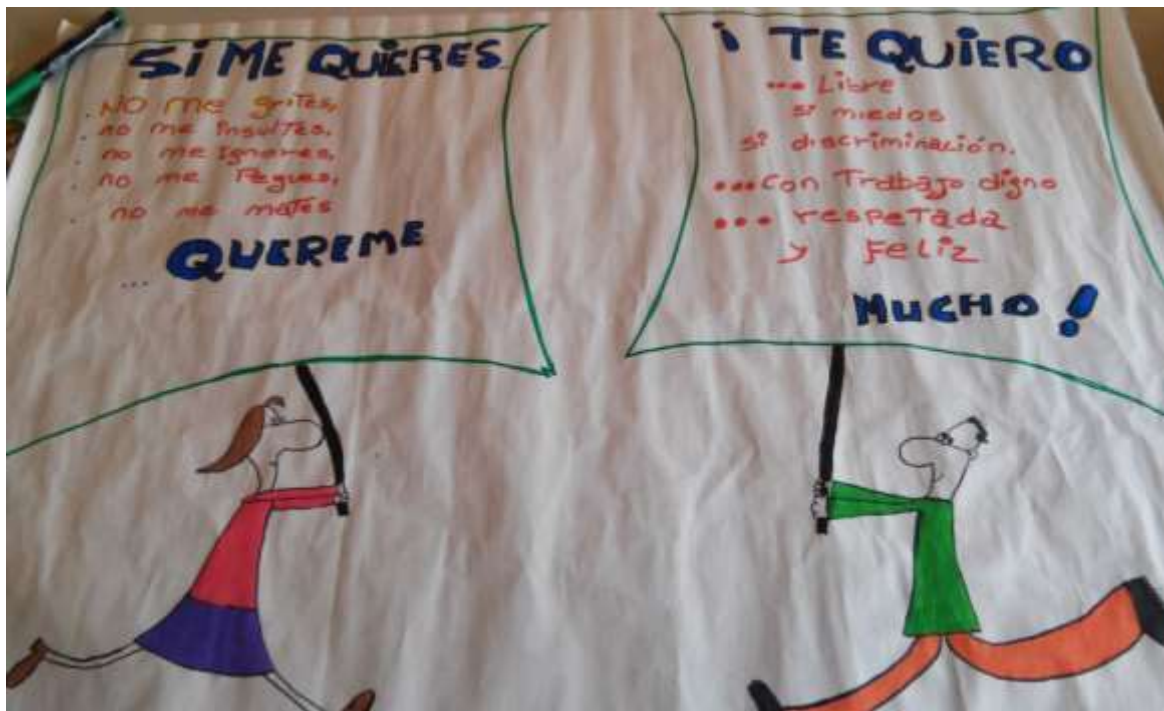 SI ME QUIERES
. NO me grites,
. no me insultes,
. no me ignores,
. no me Pegues,
. no me mates
... QUEREME
¡ TE QUIERO
... Libre
si miedos
si discriminación.
... Con Trabajo digno
... respetada
y Feliz
MUCHO !